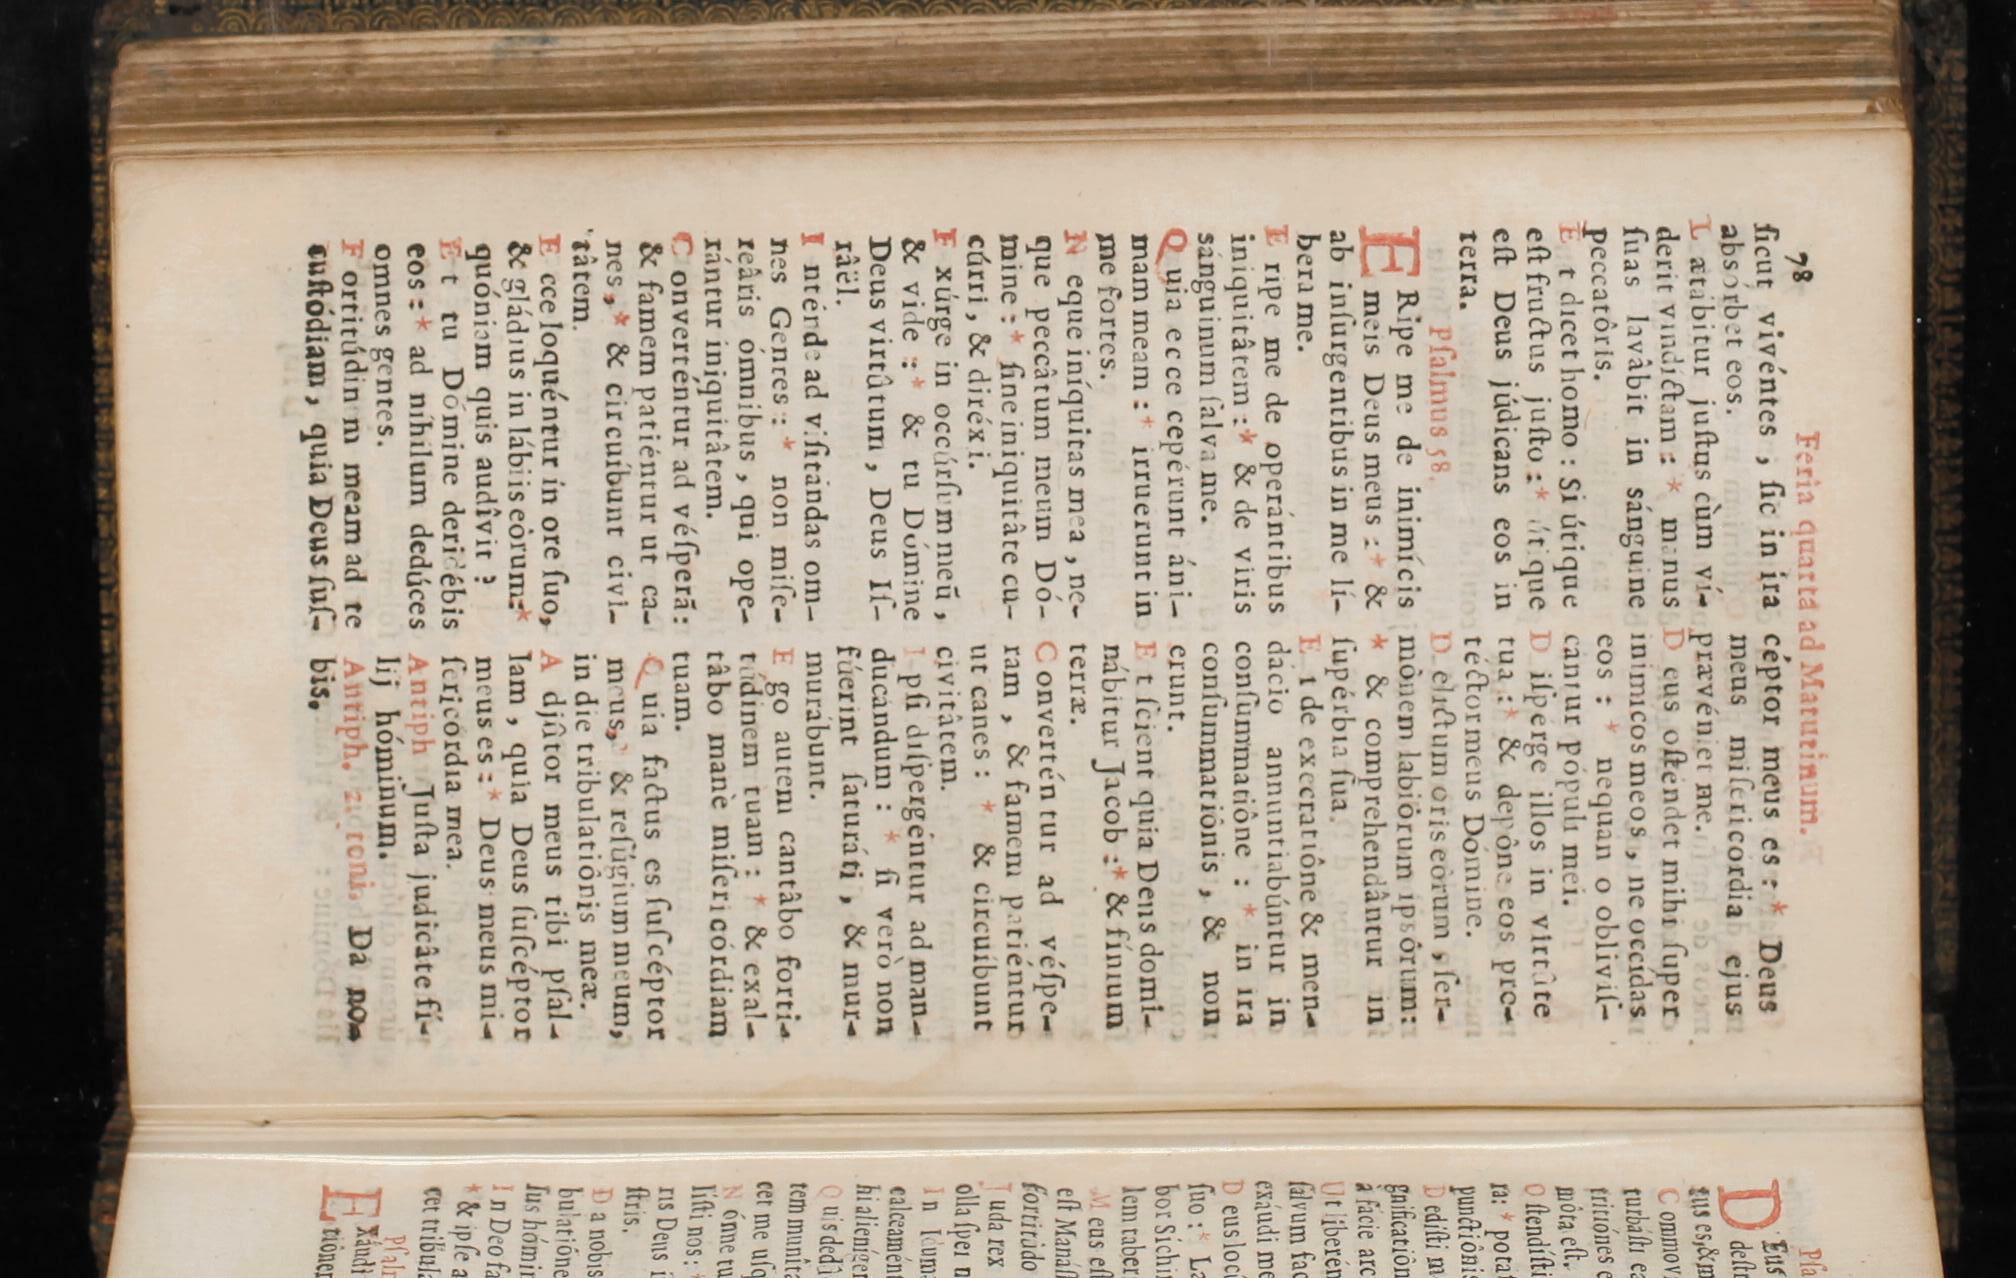 78
Feria quarta ad Matutinum.
ſicut vivéntes, ſic in ira
absórbet eos.
Lætabitur juſtus cùm ví-
derit vindictam: * manus
ſuas lavâbit in sánguine
peccatôris.
Et dicet homo: Si útique
eſt fructus juſto: * útique
eſt Deus júdicans eos in
terra.
Pſalmus 58.
ERipe me de inimícis
meis Deus meus: * &
ab inſurgentibus in me lí-
bera me.
Eripe me de operántibus
iniquitâtem: * & de viris
sánguinum ſalva me.
Quia ecce cepérunt áni-
mam meam: * irruerunt in
me fortes.
Neque iníquitas mea, ne-
que peccâtum meum Dó-
mine: * ſine iniquitâte cu-
cúrri, & diréxi.
Exúrge in occúrſum meū,
& vide: * & tu Dómine
Deus virtûtum, Deus Iſ-
râël.
Inténde ad viſitandas om-
nes Gentes: * non miſe-
reâris ómnibus, qui ope-
rántur iniquitâtem.
Converténtur ad véſperā:
& famem patiéntur ut ca-
nes, * & circuíbunt civi-
tâtem.
Ecce loquéntur in ore ſuo,
& gládius in lábiis eòrum: *
quóniam quis audîvit?
Et tu Dómine deridébis
eos: * ad níhilum dedúces
omnes gentes.
Fortitúdinem meam ad te
cuſtódiam, quia Deus ſuſ-
céptor meus es: * Deus
meus miſericordia ejus
prævéniet me.
Deus oſtendet mihi ſuper
inimicos meos, ne occídas
eos: * nequan o obliviſ-
cántur pópuli mei.
Diſpérge illos in virtûte
tua: * & depône eos pro-
téctor meus Dómine.
Delictum oris eòrum, ſer-
mònem labiòrum ipsôrum:
* & comprehendântur in
ſupérbia ſua.
Et de execratiône & men-
dácio annuntiabúntur in
conſummatiône: * in ira
conſummatiônis, & non
erunt.
Et ſcient quia Deus domi-
nábitur Jacob: * & fínium
terræ.
Converténtur ad véſpe-
ram, & famem patiéntur
ut canes: * & circuíbunt
civitâtem.
Ipſi diſpergéntur ad man-
ducándum: * ſi verò non
fúerint ſaturáti, & mur-
murábunt.
Ego autem cantâbo forti-
túdinem tuam: * & exal-
tâbo manè miſericórdiam
tuam.
Quia factus es ſuſcéptor
meus, * & refúgium meum,
in die tribulatiônis meæ.
Adjûtor meus tibi pſal-
lam, quia Deus ſuſcéptor
meus es: * Deus meus mi-
ſericórdia mea.
Antiph. Juſta judicâte fí-
lij hóminum.
Antiph. 2. toni. Da no-
bis.
Pſa
DEus
deſtr
tus es, & m
Commov
turbáſti ea
tritiónes e
môta eſt.
Oſtendíſti
ra: * potaſ
punctiônis
Dediſti m
gnificatiôn
à fácie arc
Ut liberén
ſálvum fac
exáudi me
Deus locú
ſuo: * Læ
bor Síchi
lem taber
Meus eſt
eſt Manáſ
fortitúdo
Juda rex
olla ſpei
In Idumæ
calceamént
hi alienígen
Quis dedú
cet me uſq
tem munîta
Nónne tu
liſti nos: *
ris Deus i
ſtris.
Da nobis
bulatiône
lus hómin
In Deo fa
* & ipſe a
cet tribula
Pſalm
Exáudi
tiônem